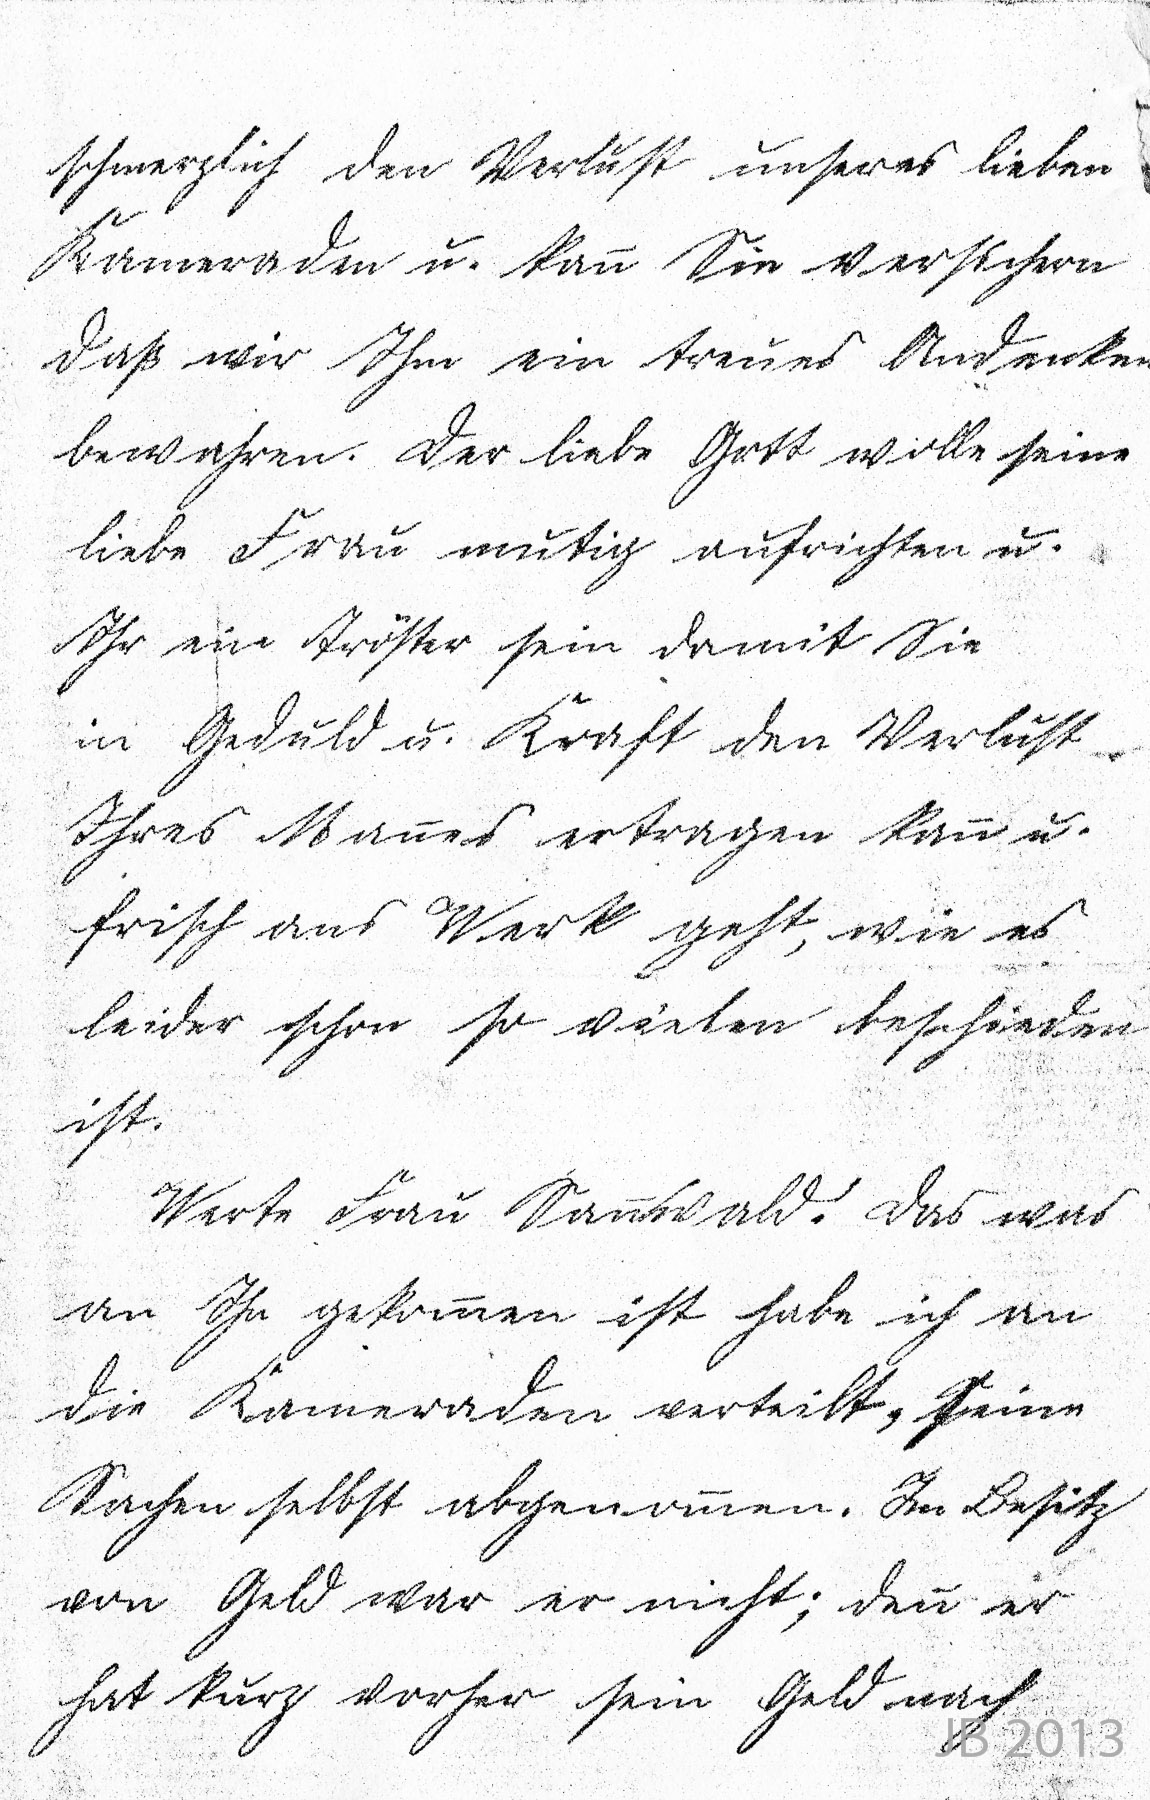 schmerzlich den Verlust unseres lieben
Kameraden u. kan̄ Sie versichern
daß wir Ihm ein treues Andenken
bewahren. Der liebe Gott wolle seine
liebe Frau mutig aufrichten u.
Ihr ein Tröster sein damit Sie
in Geduld u. Kraft den Verlust
Ihres Man̄es ertragen kan̄ u.
frisch ans Werk geht, wie es
leider schon so vielen beschieden
ist.
Werte Frau San̄wald! Das was
an Ihn gekom̄en ist habe ich an
die Kameraden verteilt, seine
Sachen selbst abgenom̄en. Im Besitz
von Geld war er nicht; den̄ er
hat kurz vorher sein Geld nach
JB 2013